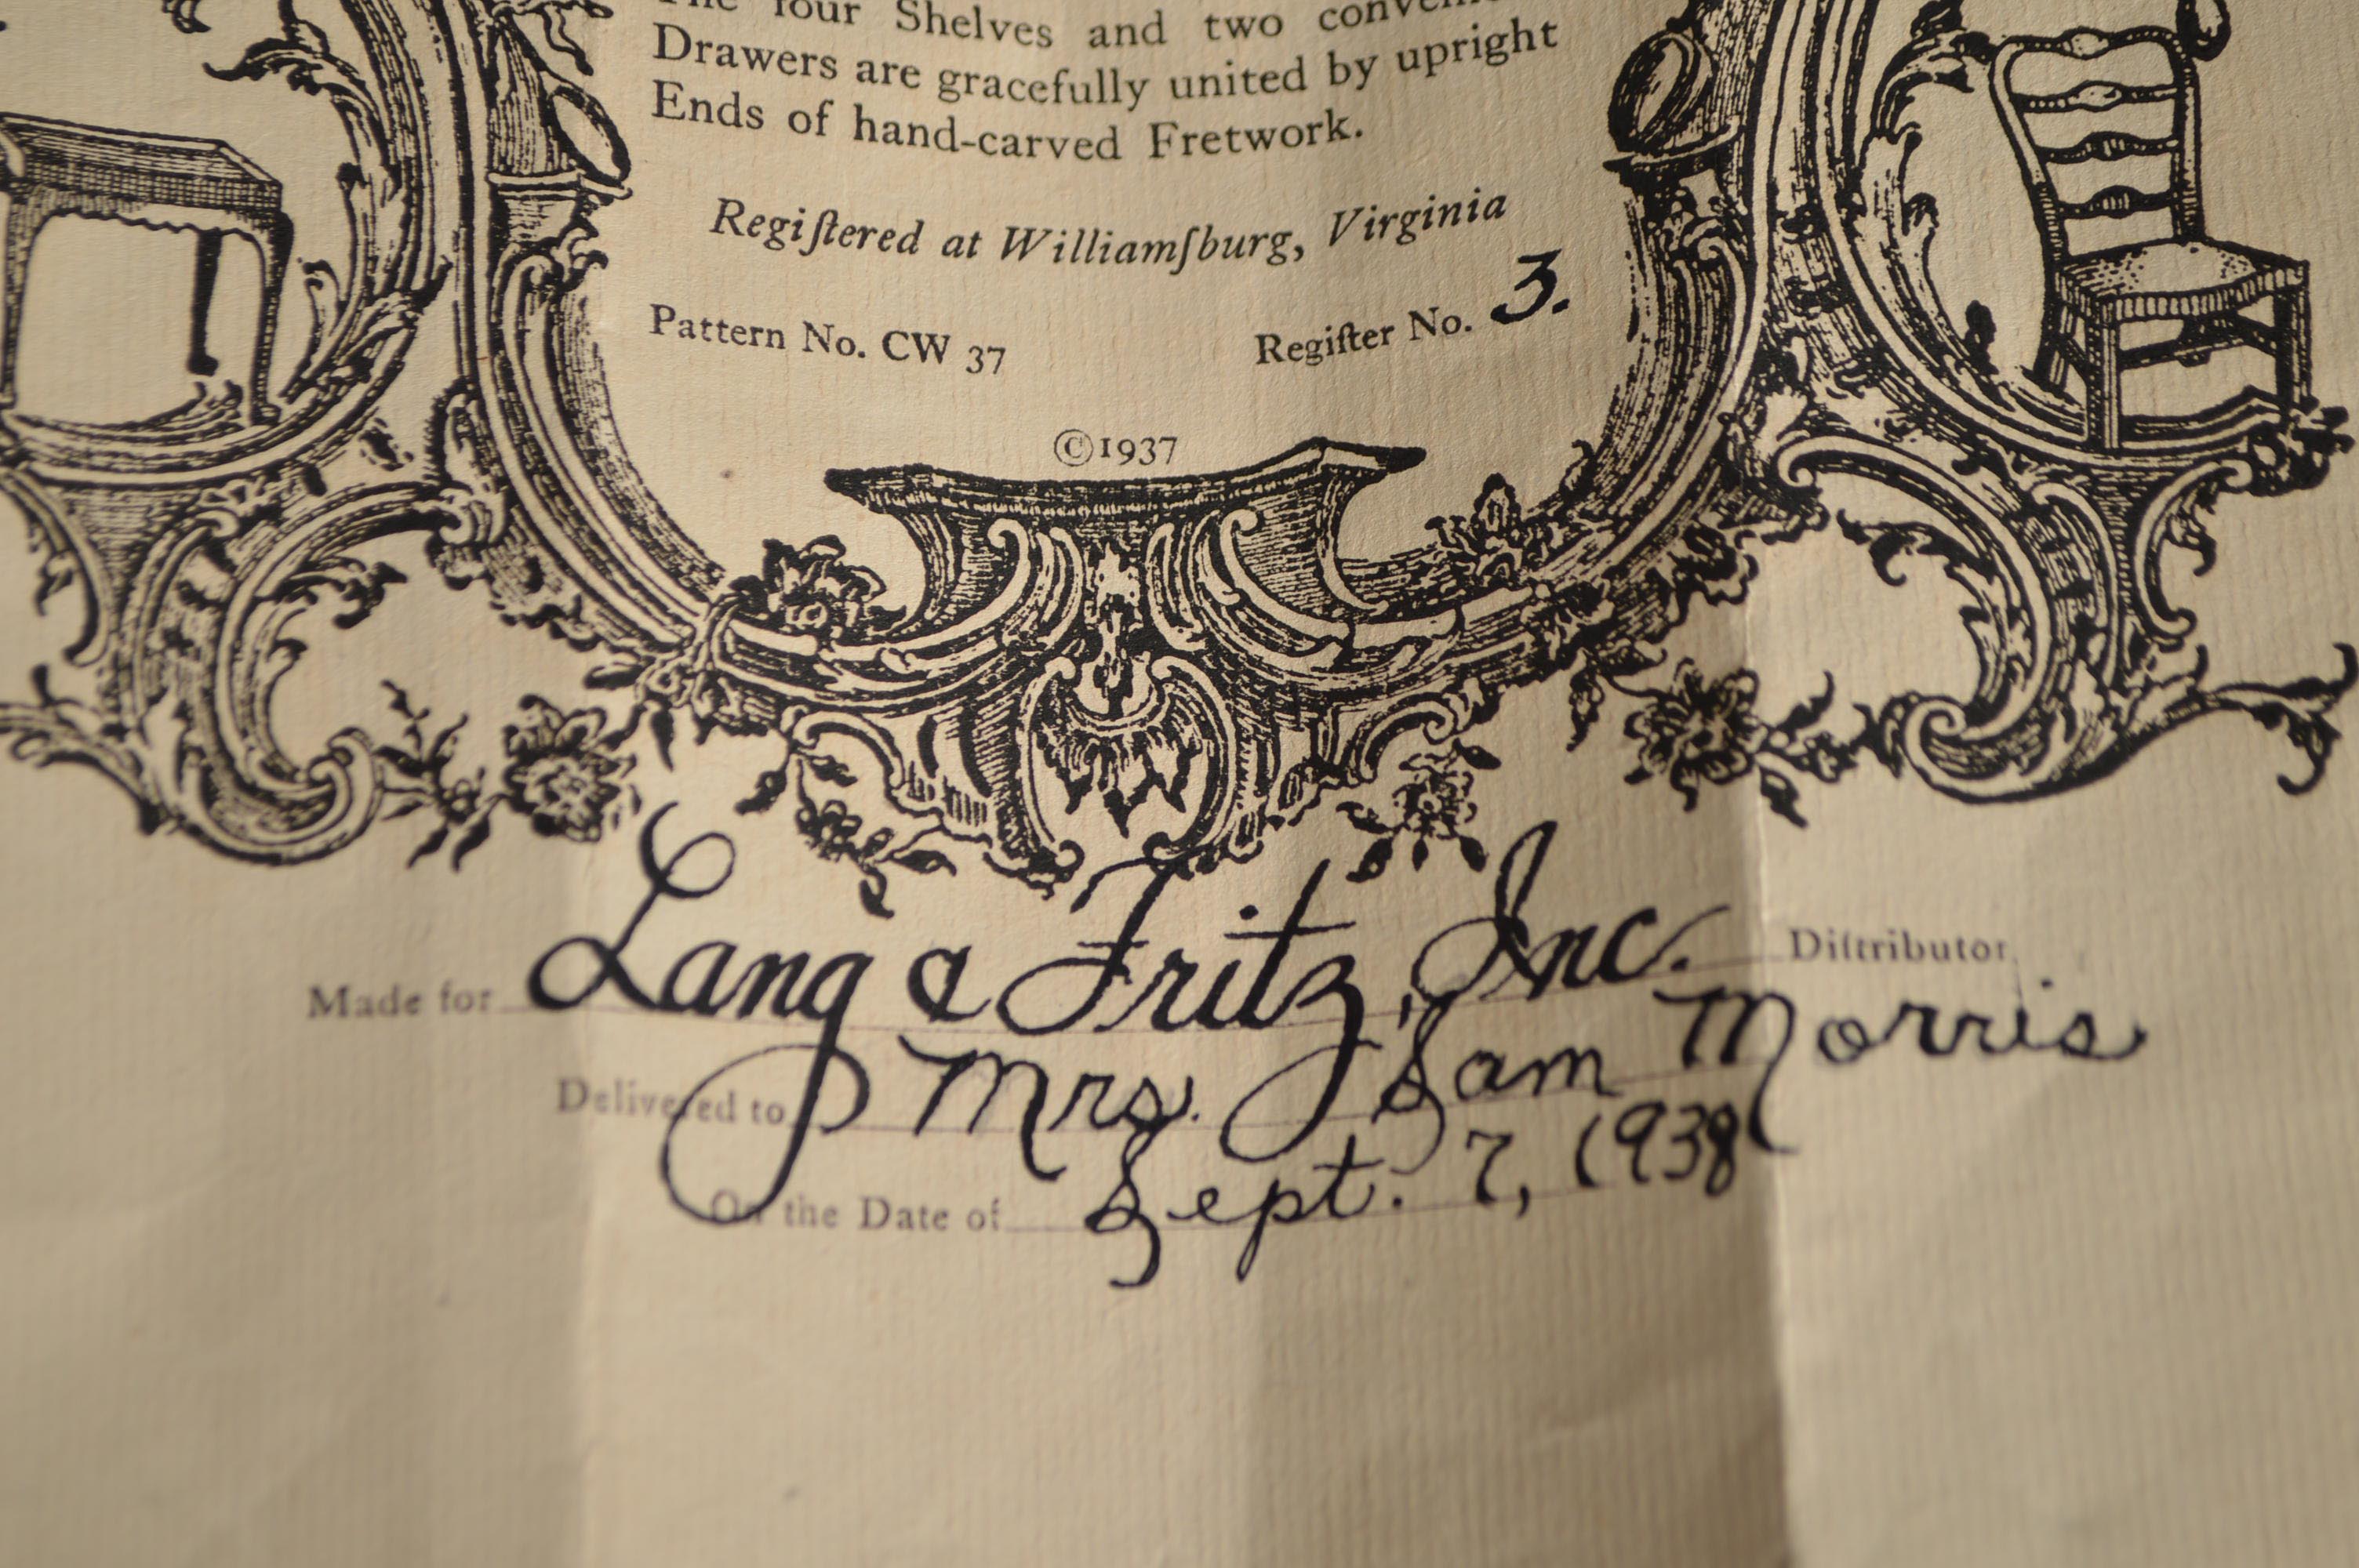 The four Shelves and two
Drawers are gracefully united by upright
Ends of hand-carved Fretwork.
Regiſtered at Williamſburg, Virginia
Pattern No. CW 37 Regiſter No. 3.
©1937
Made for Lang & Fritz, Inc. Diſtributor
Delivered to Mrs. Sam Morris
On the Date of Sept. 7, 1938